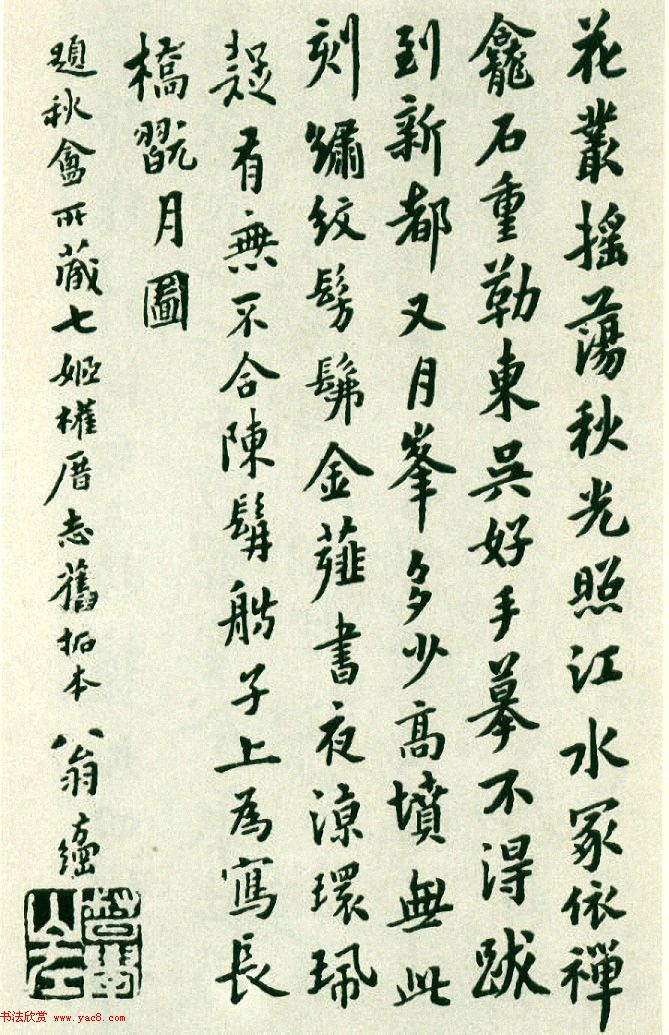 花叢搖蕩秋光照江水冢依禪
龕石重勒東吳好手摹不得跋
到新都又月峯多少高墳無此
刻繡紋髣髴金薤書夜涼環珮
疑有無不合陳髯子上為寫長
橋翫月圖
題秋盦所藏七姬權厝志舊拓本 翁方綱
书法欣赏 www.yac8.com